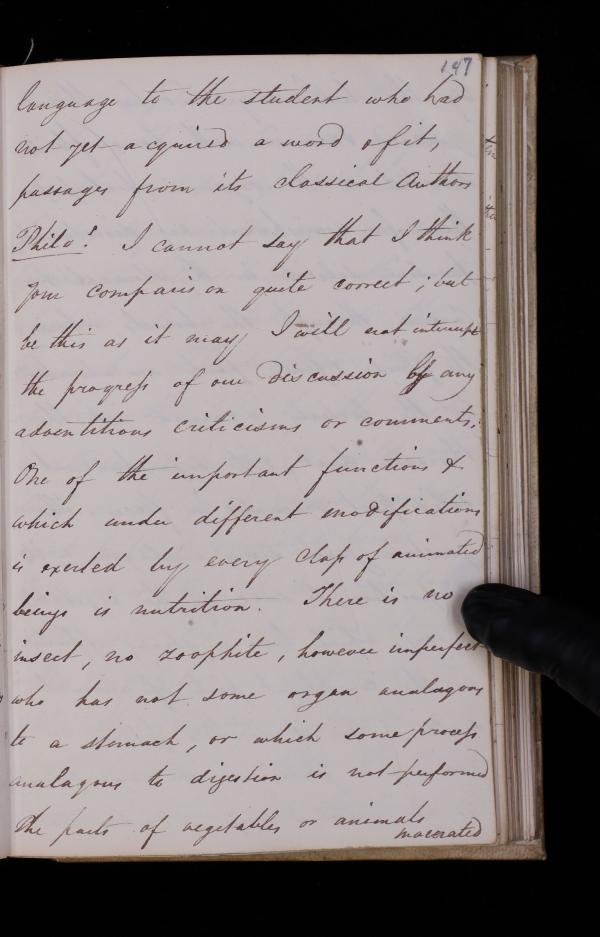 147
language to the student who had
not yet acquired a word of it,
passages from its classical Authors
Philo! I cannot say that I think
your comparison quite correct; but
be this as it may I will not interrupt
the progress of our discussion by any
adventitious criticisms or comments.
One of the important functions &
which under different modifications
is exerted by every class of animated
beings is nutrition. There is no
insect, no zoophite, however imperfect
who has not some organ analagous
to a stomach, or which some process
analagous to digestion is not performed
The parts of vegetables or animals
macerated